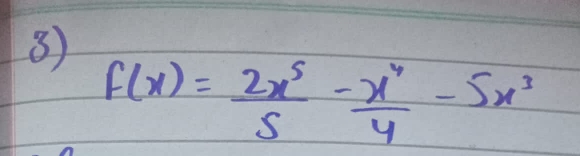 3)
f(x) = 2x⁵/5 - x⁴/4 - 5x³